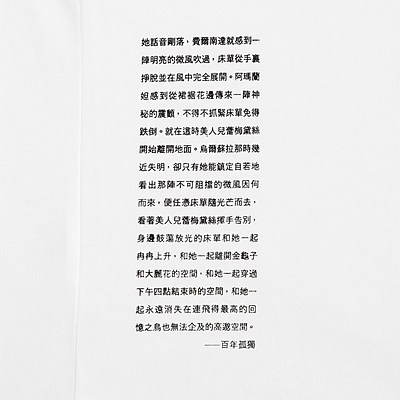 她話音剛落，費爾南達就感到一
陣明亮的微風吹過，床單從手裏
掙脫並在風中完全展開。阿瑪蘭
妲感到從裙裾花邊傳來一陣神
秘的震顫，不得不抓緊床單免得
跌倒。就在這時美人兒蕾梅黛絲
開始離開地面。烏爾蘇拉那時幾
近失明，卻只有她能鎮定自若地
看出那陣不可阻擋的微風因何
而來，便任憑床單隨光芒而去，
看著美人兒蕾梅黛絲揮手告別，
身邊鼓蕩放光的床單和她一起
冉冉上升，和她一起離開金龜子
和大麗花的空間，和她一起穿過
下午四點結束時的空間，和她一
起永遠消失在連飛得最高的回
憶之鳥也無法企及的高邈空間。
——百年孤獨